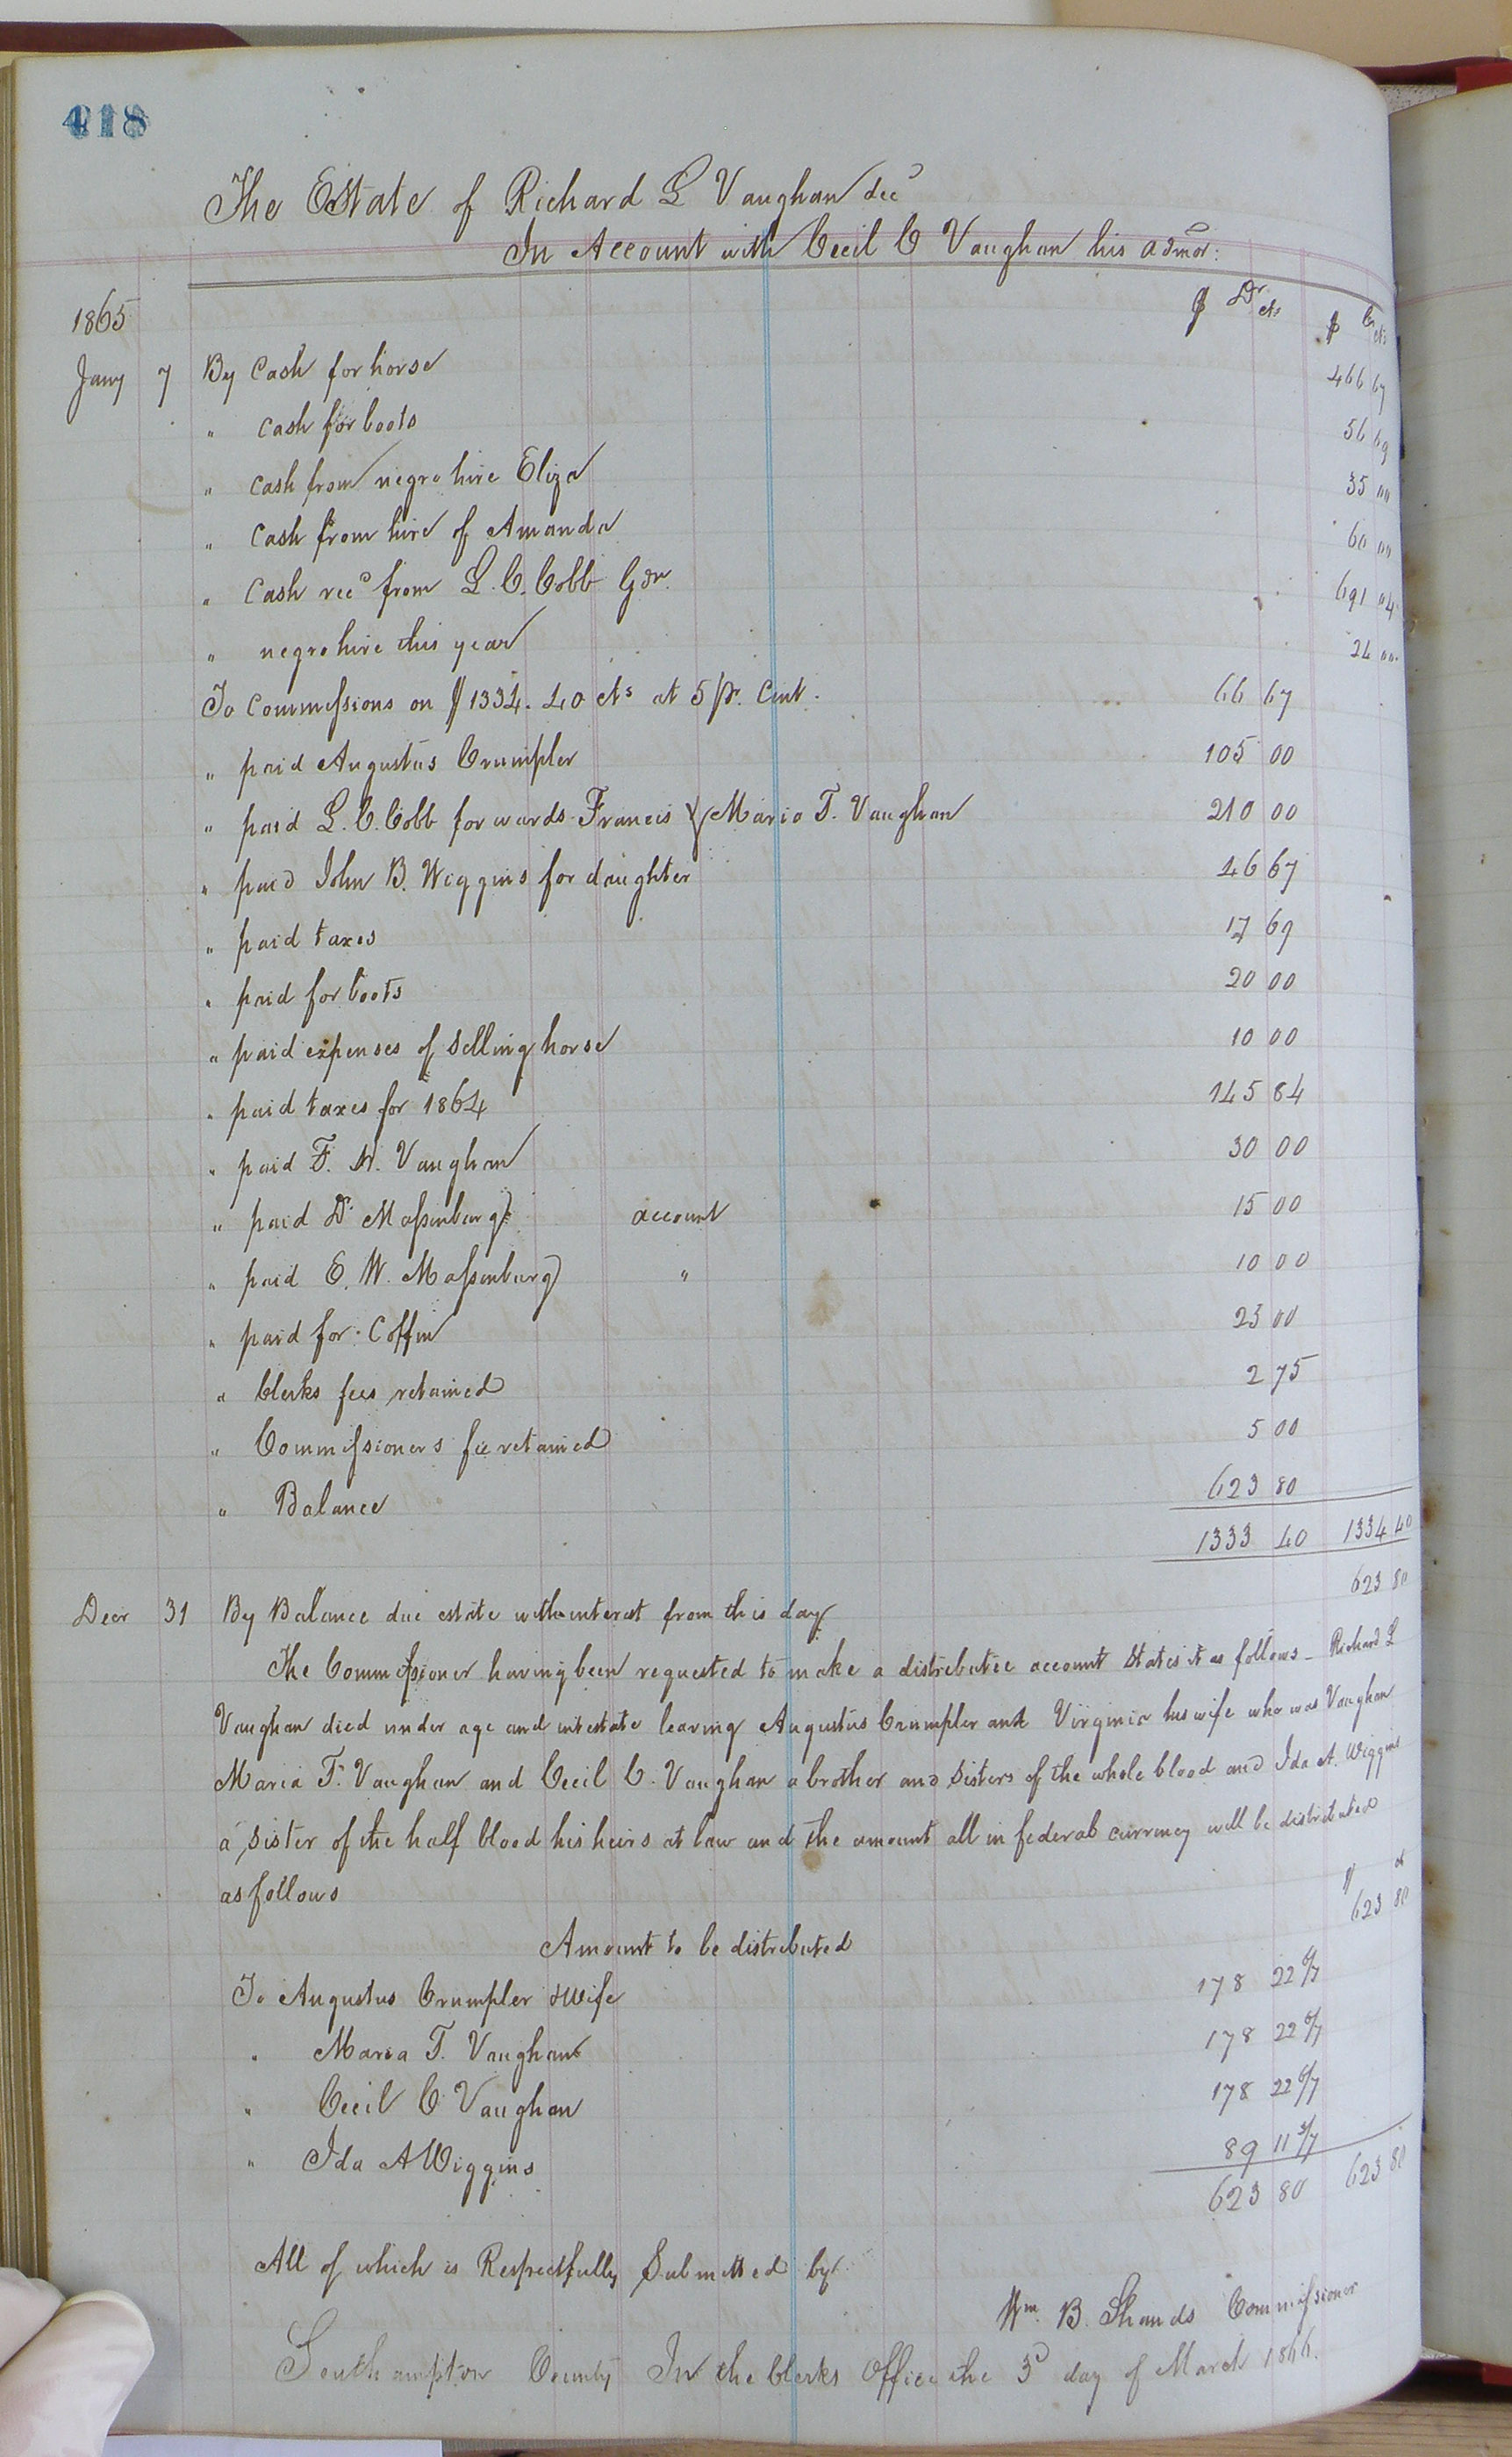 418
The Estate of Richard L Vaughan decd
In Account with Cecil C Vaughan his admor:
1865 $ Dr cts $ Cr cts
Jany 7 By Cash for horse 466 67
" Cash for boots 56 69
" Cash from negro hire Eliza 35 00
" Cash from hire of Amanda 60 00
" Cash recd from L. C. Cobb Gdn. 691 04
" negro hire this year 24 00
To Commissions on $1334.40 cts at 5 pr. Cent. 66 67
" paid Augustus Crumpler 105 00
" paid L. C. Cobb for wards Francis & Maria T. Vaughan 210 00
" paid John B. Wiggins for daughter 46 67
" paid taxes 17 69
" paid for boots 20 00
" paid expenses of selling horse 10 00
" paid taxes for 1864 145 84
" paid F. N. Vaughan 30 00
" paid Dr Massenburg account 15 00
" paid E. W. Massenburg " 10 00
" paid for Coffin 25 00
" Clerks fees retained 2 75
" Commissioners fee retained 5 00
" Balance 623 80
1333 40 1334 40
623 80
Decr 31 By Balance due estate with interest from this day
The Commissioner having been requested to make a distributee account States it as follows - Richard L
Vaughan died under age and intestate leaving Augustus Crumpler and Virginia his wife who was Vaughan
Maria T. Vaughan and Cecil C. Vaughan a brother and sisters of the whole blood and Ida A. Wiggins
a sister of the half blood his heirs at law and the amount all in federal currency will be distributed
as follows $ ct
Amount to be distributed 623 80
To Augustus Crumpler & wife 178 22 6/7
" Maria T. Vaughan 178 22 6/7
" Cecil C Vaughan 178 22 6/7
" Ida A Wiggins 89 11 3/7
623 80 623 80
All of which is Respectfully Submitted by
Wm. B. Shands Commissioner
Southampton County In the Clerks Office the 3d day of March 1866.